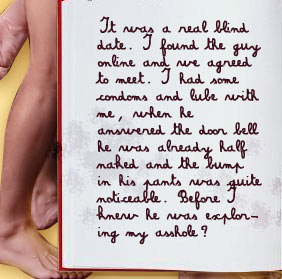 It was a real blind
date. I found the guy
online and we agreed
to meet. I had some
condoms and lube with
me, when he
answered the door bell
he was already half
naked and the bump
in his pants was quite
noticeable. Before I
knew he was explor-
ing my asshole?